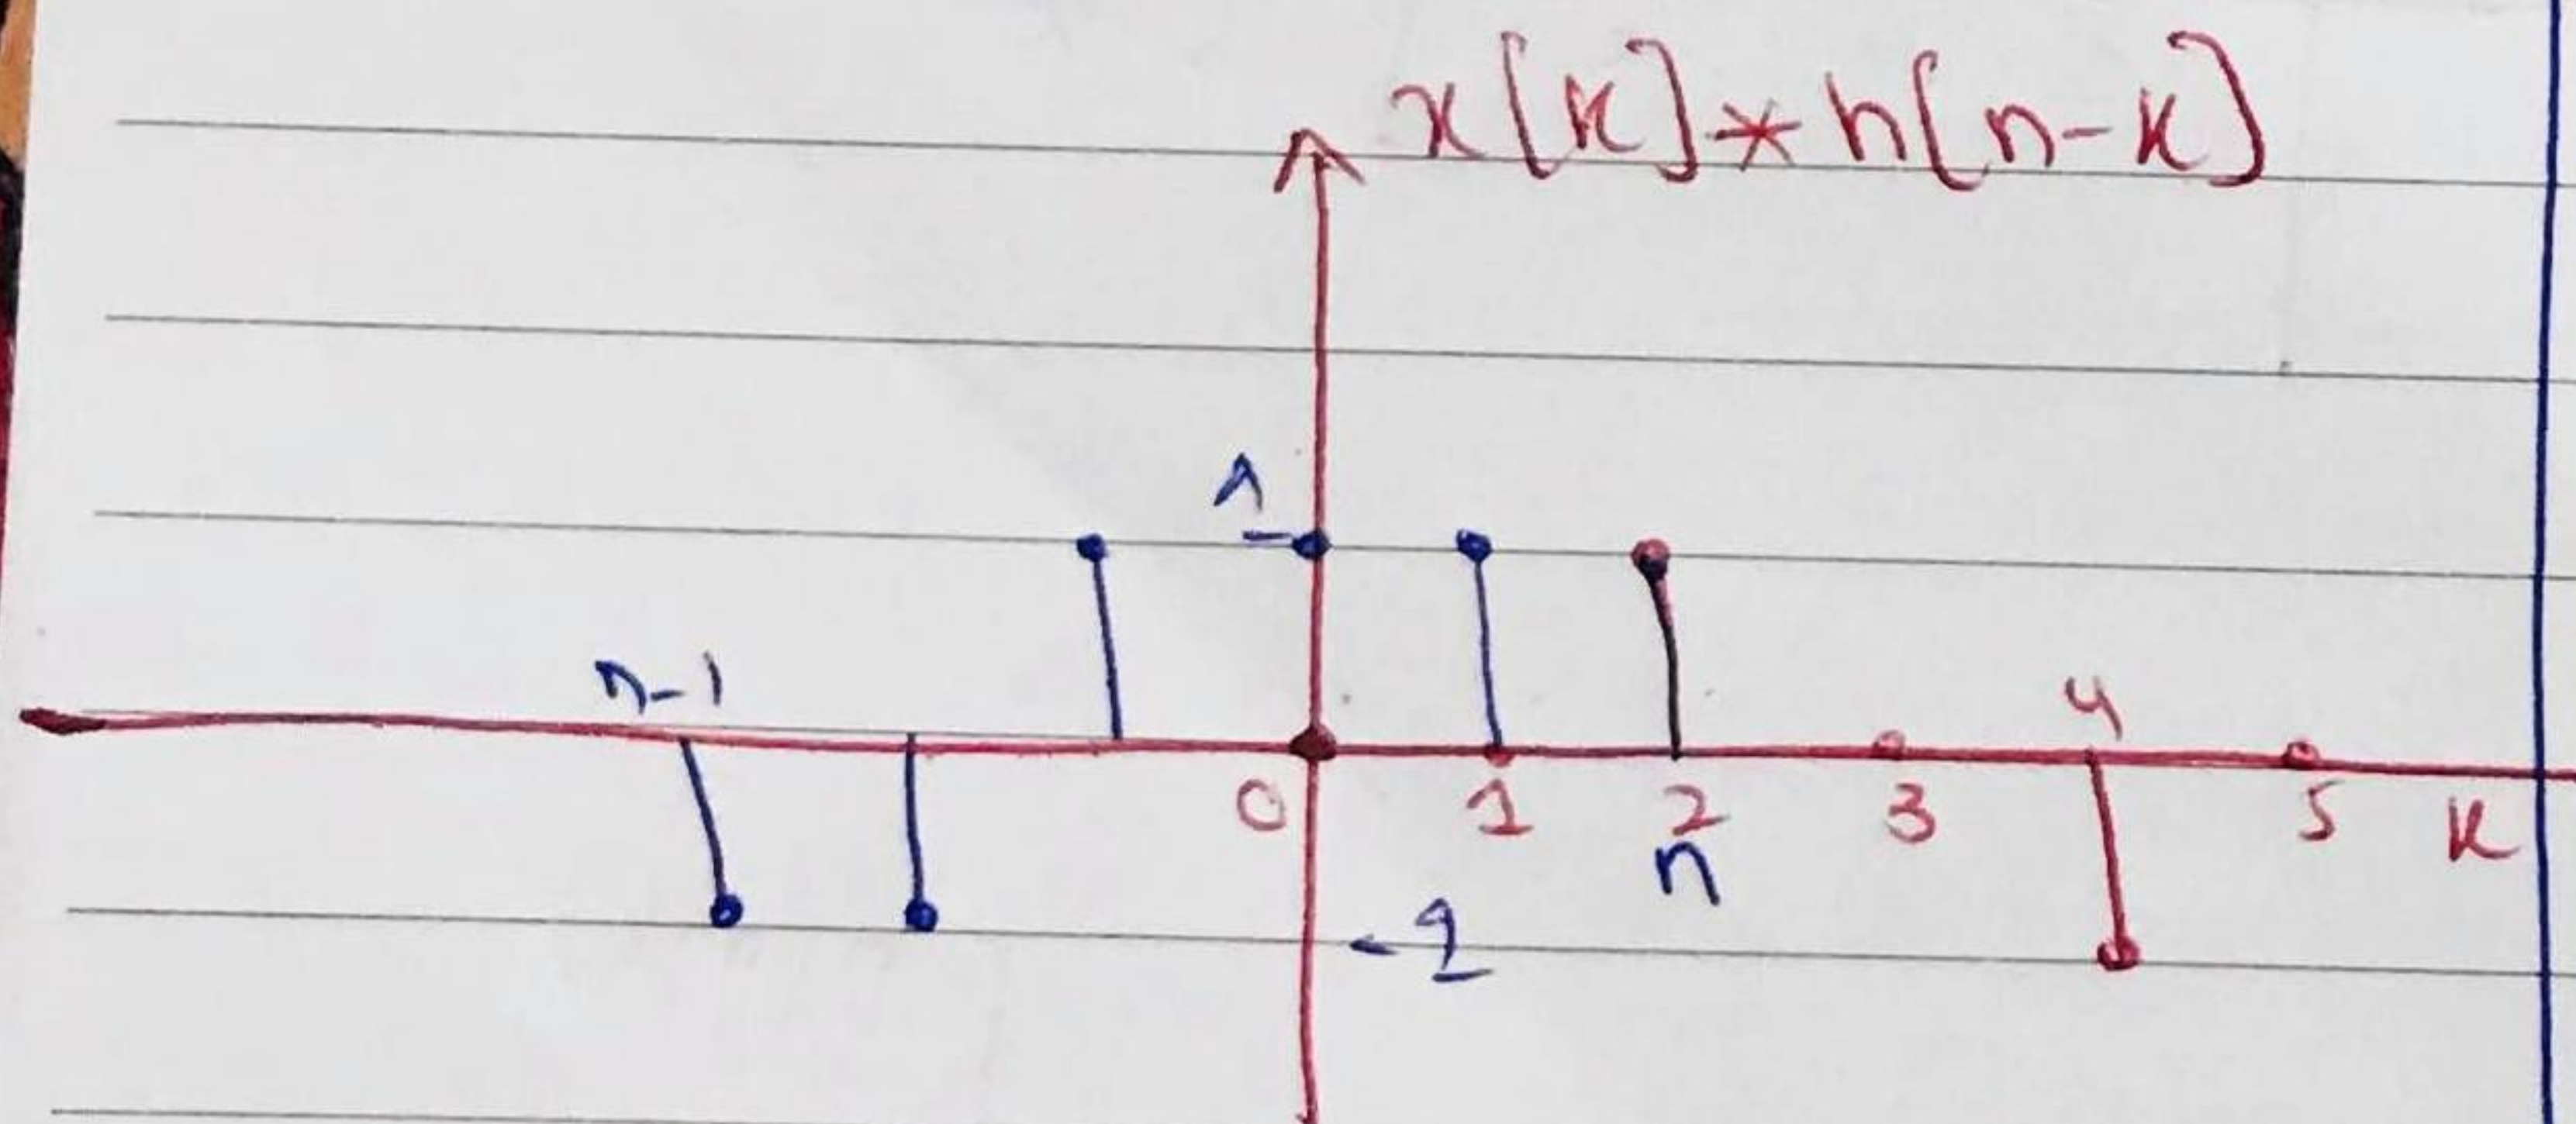 x[k]*h[n-k]
1
n-1
4
0 1 2 3 5 k
n
-1